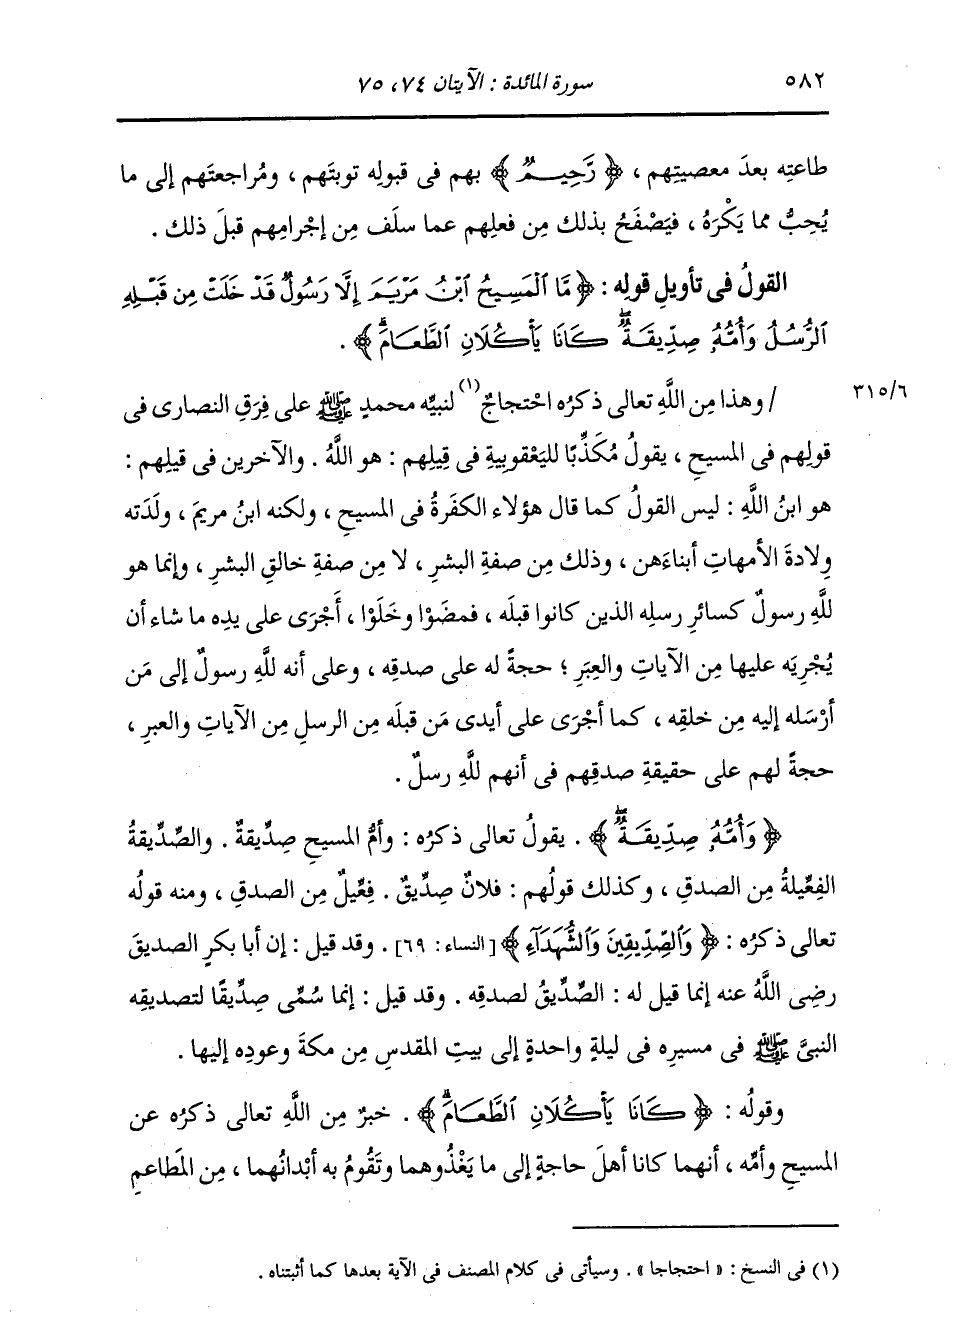 ٥٨٢ سورة المائدة : الآيتان ٧٤، ٧٥
طاعتِه بعدَ معصيتِهم ، ﴿ رَّحِيمٌ ﴾ بهم فى قبولِه توبتَهم ، ومُراجعتَهم إلى ما
يُحِبُّ مما يَكْرَهُ ، فيَصْفَحُ بذلك مِن فعلِهم عما سلَف مِن إجْرامِهم قبلَ ذلك .
القولُ فى تأويلِ قولِه : ﴿ مَّا ٱلْمَسِيحُ ٱبْنُ مَرْيَمَ إِلَّا رَسُولٌ قَدْ خَلَتْ مِن قَبْلِهِ
ٱلرُّسُلُ وَأُمُّهُۥ صِدِّيقَةٌۖ كَانَا يَأْكُلَانِ ٱلطَّعَامَۗ ﴾ .
/ وهذا مِن اللَّهِ تعالى ذكرُه احْتجاجٌ(١) لنبيِّه محمدٍ ﷺ على فِرَقِ النصارى فى ٣١٥/٦
قولِهم فى المسيحِ ، يقولُ مُكَذِّبًا لليَعْقوبيةِ فى قِيلِهم : هو اللَّهُ . والآخرين فى قيلِهم :
هو ابنُ اللَّهِ : ليس القولُ كما قال هؤلاء الكفَرةُ فى المسيحِ ، ولكنه ابنُ مريمَ ، ولَدَته
وِلادةَ الأمهاتِ أبناءَهن ، وذلك مِن صفةِ البشرِ ، لا مِن صفةِ خالقِ البشرِ ، وإنما هو
للَّهِ رسولٌ كسائرِ رسلِه الذين كانوا قبلَه ، فمضَوْا وخَلَوْا ، أَجْرَى على يدِه ما شاء أن
يُجْرِيَه عليها مِن الآياتِ والعِبَرِ ؛ حجةً له على صدقِه ، وعلى أنه للَّهِ رسولٌ إلى مَن
أرْسَله إليه مِن خلقِه ، كما أجْرَى على أيدى مَن قبلَه مِن الرسلِ مِن الآياتِ والعبرِ ،
حجةً لهم على حقيقةِ صدقِهم فى أنهم للَّهِ رسلٌ .
﴿ وَأُمُّهُۥ صِدِّيقَةٌۖ ﴾ . يقولُ تعالى ذكرُه : وأمُّ المسيحِ صِدِّيقةٌ . والصِّدِّيقةُ
الفِعِّيلةُ مِن الصدقِ ، وكذلك قولُهم : فلانٌ صِدِّيقٌ . فِعِّيلٌ مِن الصدقِ ، ومنه قولُه
تعالى ذكرُه : ﴿ وَٱلصِّدِّيقِينَ وَٱلشُّهَدَآءِ ﴾ [النساء: ٦٩] . وقد قيل : إن أبا بكرٍ الصديقَ
رضِى اللَّهُ عنه إنما قيل له : الصِّدِّيقُ لصدقِه . وقد قيل : إنما سُمِّى صِدِّيقًا لتصديقِه
النبىَّ ﷺ فى مسيرِه فى ليلةٍ واحدةٍ إلى بيتِ المقدسِ مِن مكةَ وعودِه إليها .
وقولُه : ﴿ كَانَا يَأْكُلَانِ ٱلطَّعَامَۗ ﴾ . خبرٌ مِن اللَّهِ تعالى ذكرُه عن
المسيحِ وأمِّه ، أنهما كانا أهلَ حاجةٍ إلى ما يَغْذُوهما وتَقُومُ به أبْدانُهما ، مِن المَطاعمِ
(١) فى النسخ : « احتجاجا » . وسيأتى فى كلام المصنف فى الآية بعدها كما أثبتناه .